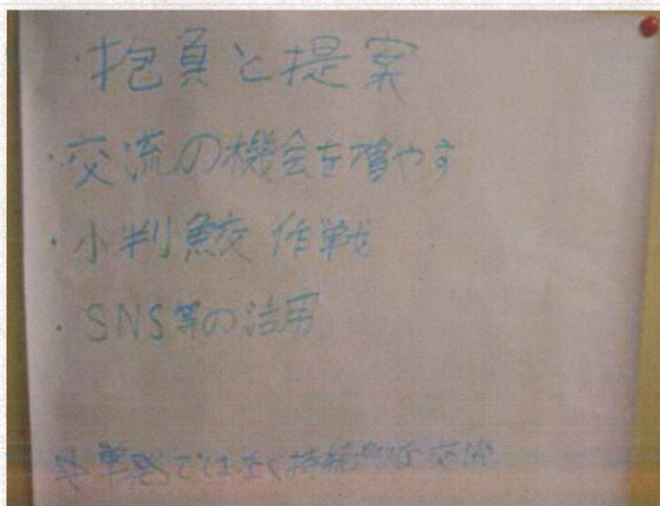 抱負と提案
・交流の機会を増やす
・小判鮫作戦
・SNS等の活用
単発ではなく持続的な交流